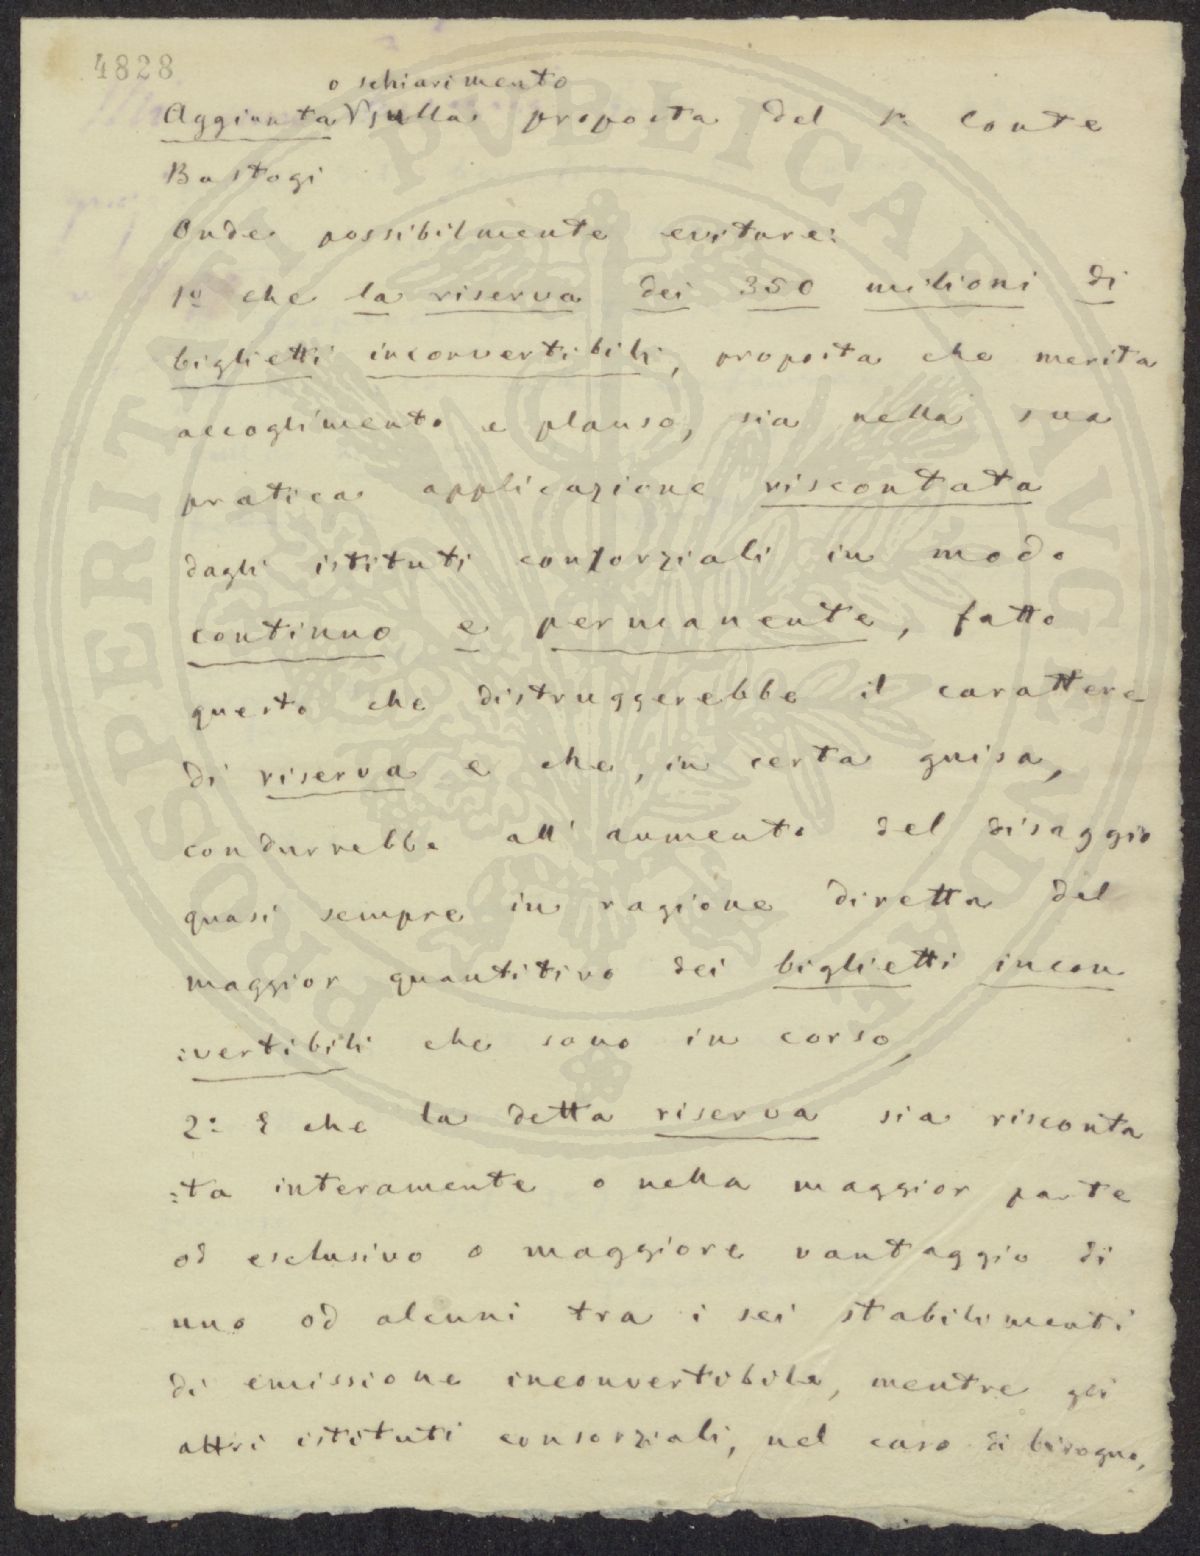 4828
o schiarimento
Aggiunta V sulla proposta del Sr. Conte
Bastogi
Onde possibilmente evitare:
1º che la riserva dei 350 milioni di
biglietti inconvertibili, proposta che merita
accoglimento e plauso, sia nella sua
pratica applicazione riscontata
dagli istituti consorziali in modo
continuo e permanente, fatto
questo che distruggerebbe il carattere
di riserva e che, in certa guisa,
condurrebbe all'aumento del disaggio
quasi sempre in ragione diretta del
maggior quantitivo dei biglietti incon
:vertibili che sono in corso,
2: E che la detta riserva sia risconta
:ta interamente o nella maggior parte
od esclusivo o maggiore vantaggio di
uno od alcuni tra i sei stabilimenti
di emissione inconvertibile, mentre gli
altri istituti consorziali, nel caso di bisogno,
PROSPERITATI PVBLICAE AVGENDAE